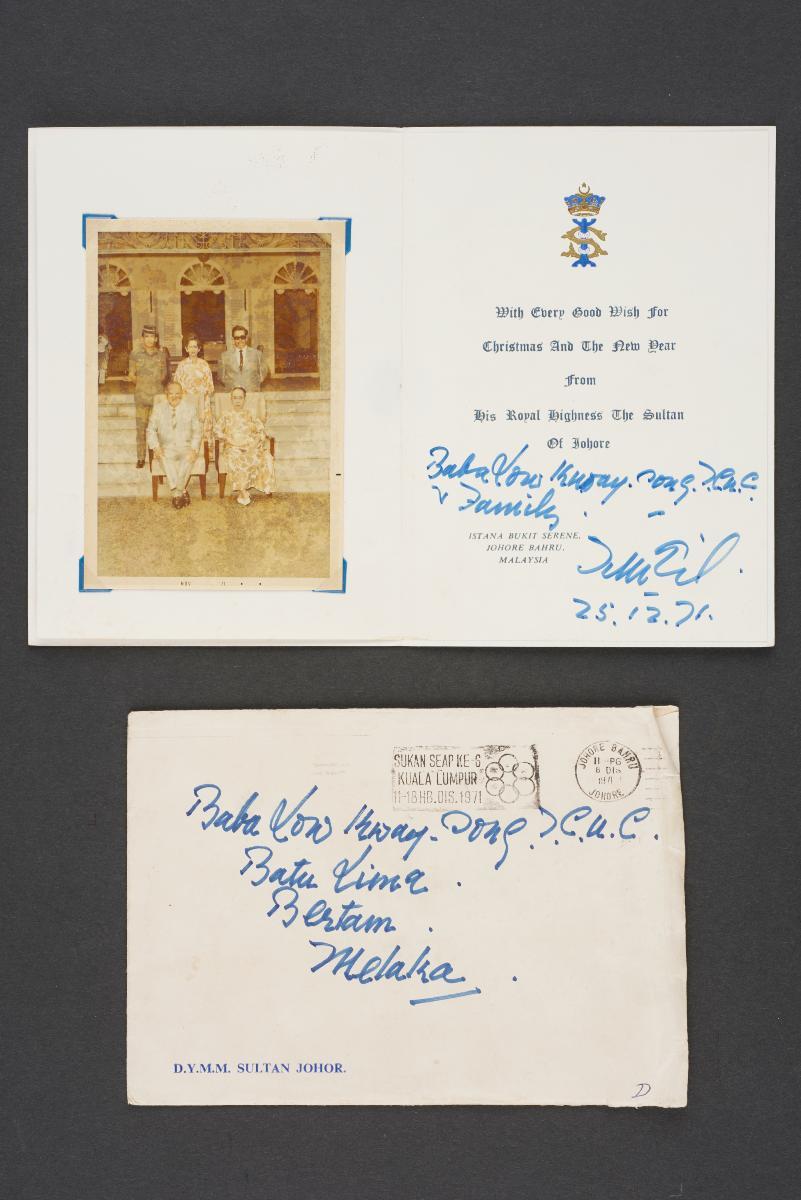 With Every Good Wish For
Christmas And The New Year
From
His Royal Highness The Sultan
Of Johore
Baba Low Kway-Song
& Family.
ISTANA BUKIT SERENE,
JOHORE BAHRU,
MALAYSIA
25.12.71.
NOV 71
SUKAN SEAP KE-6
KUALA LUMPUR
11-18HB.DIS.1971
JOHORE BAHRU
11 -PG
6 DIS
1971
JOHORE
Baba Low Kway-Song
Batu Lima.
Bertam.
Melaka.
D.Y.M.M. SULTAN JOHOR.
D